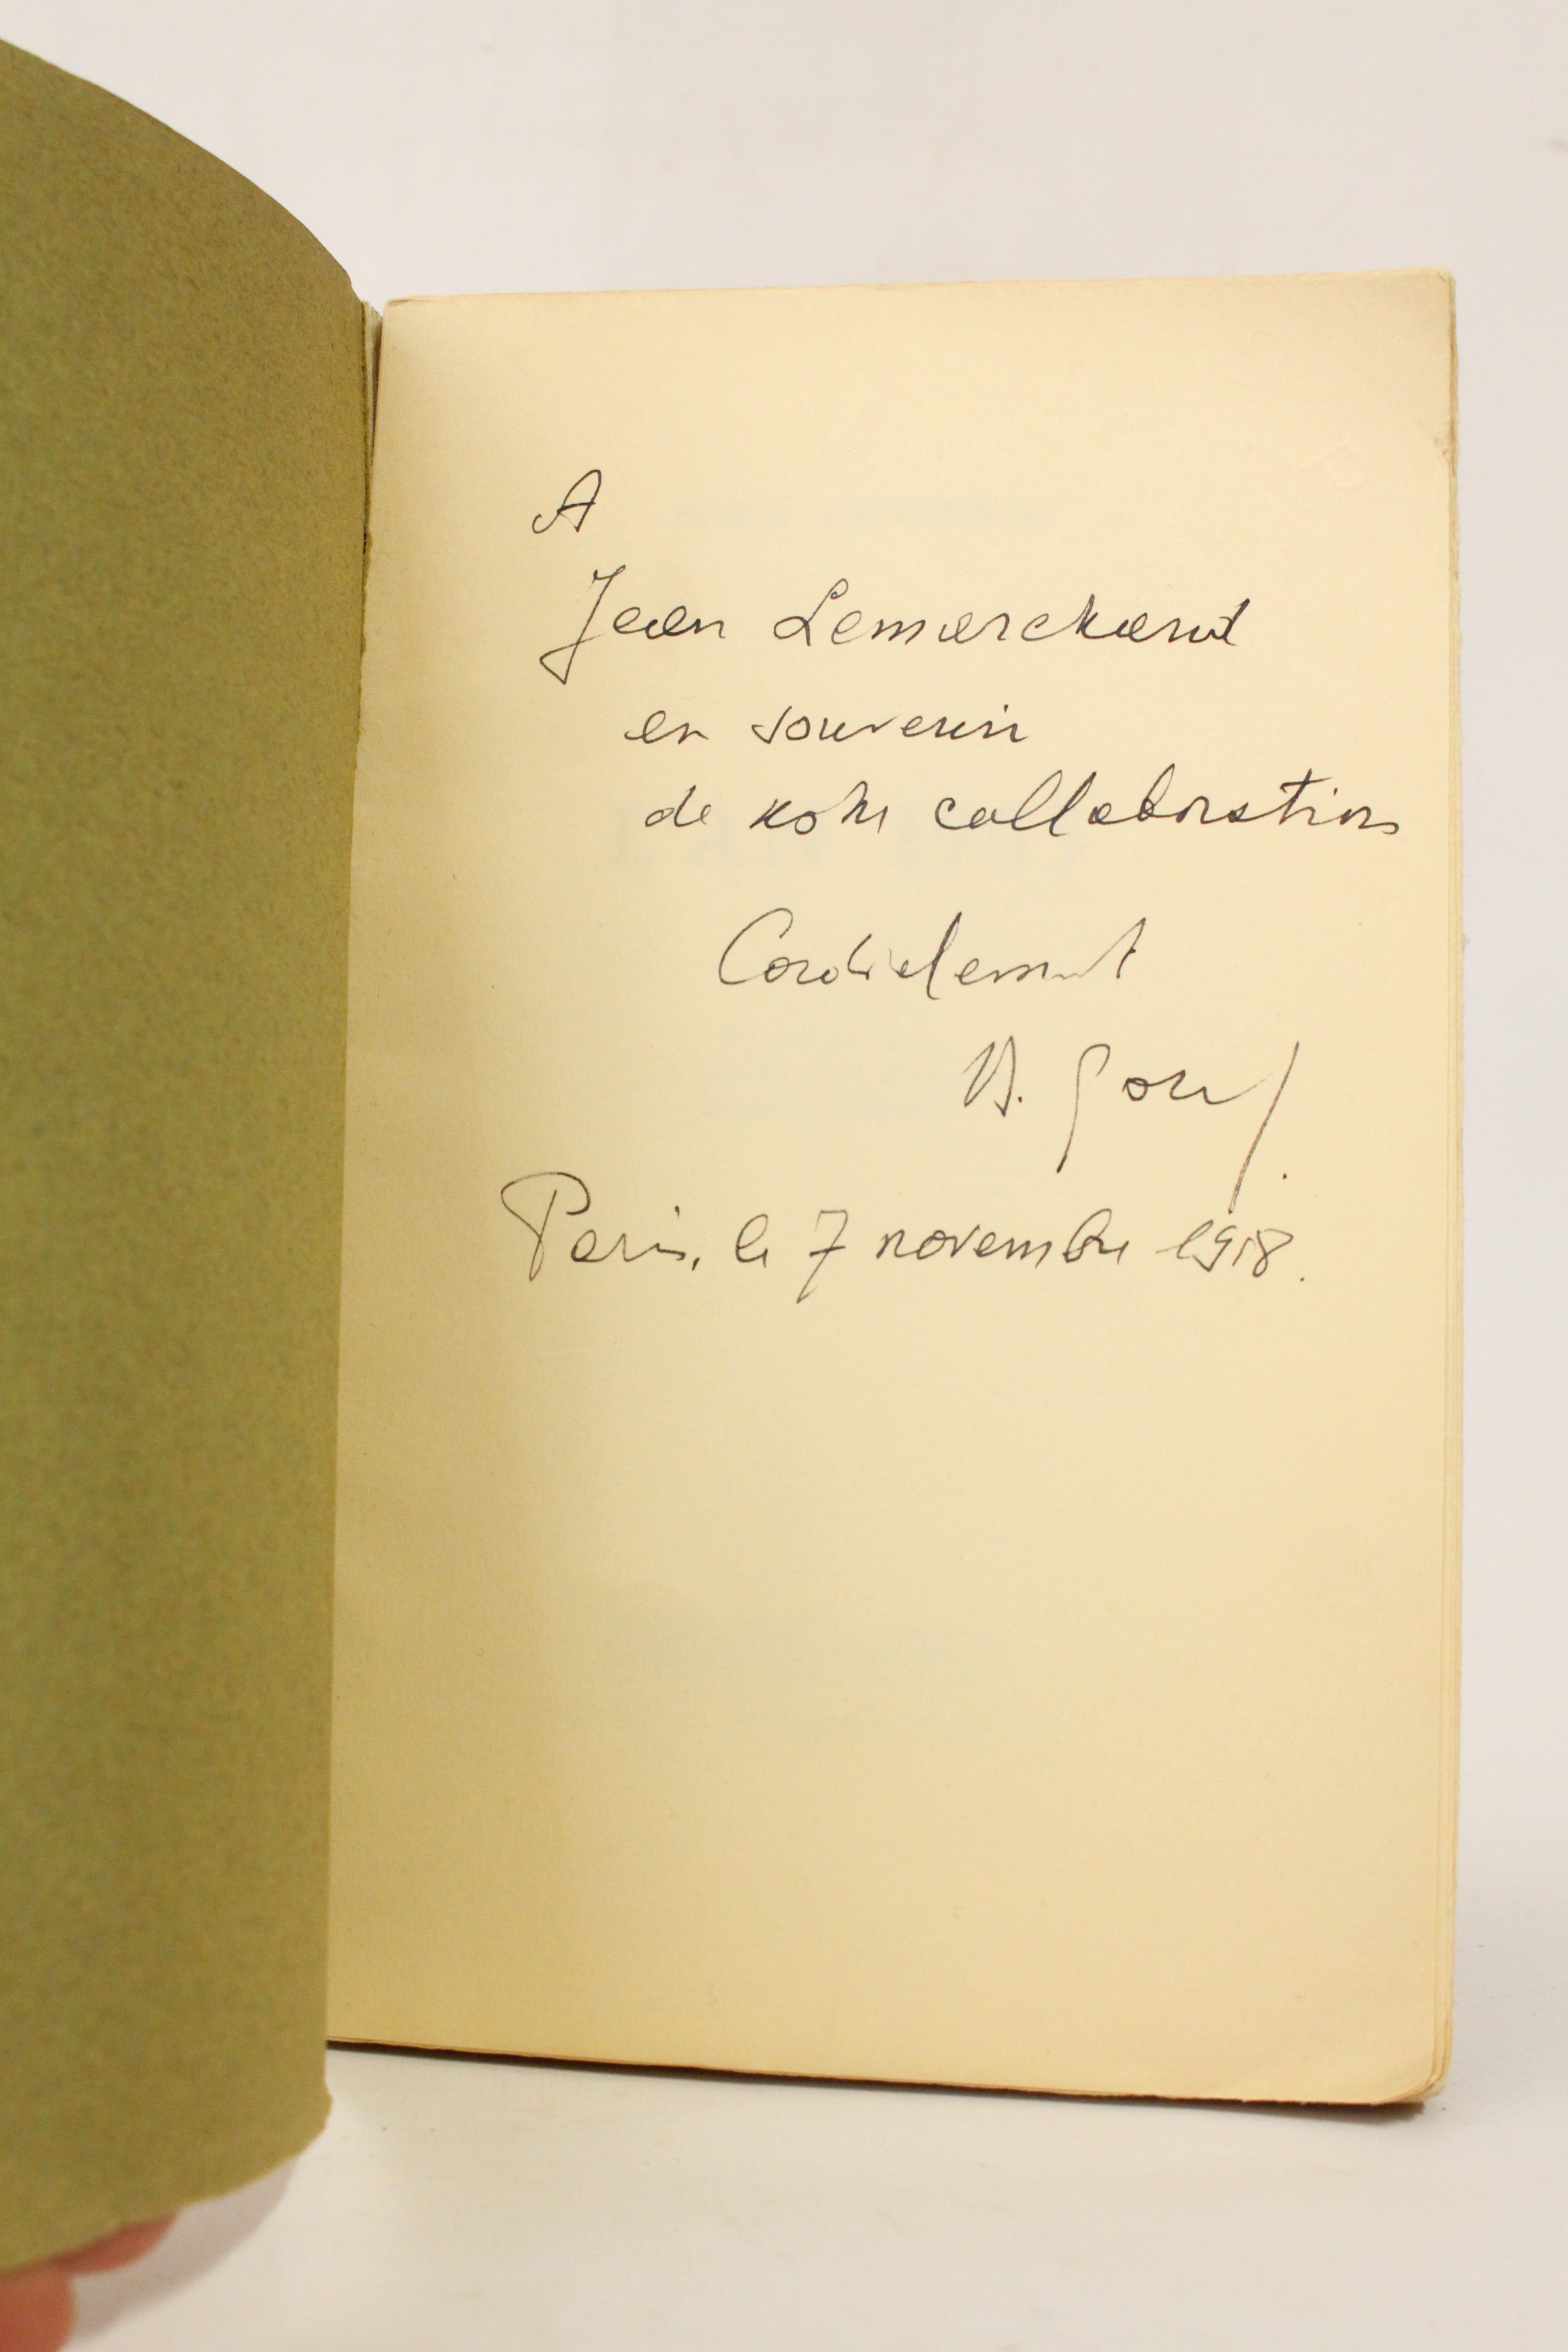 A
Jean Lemarchand
en souvenir
de notre collaboration
Cordialement
Paris, le 7 novembre 1958.